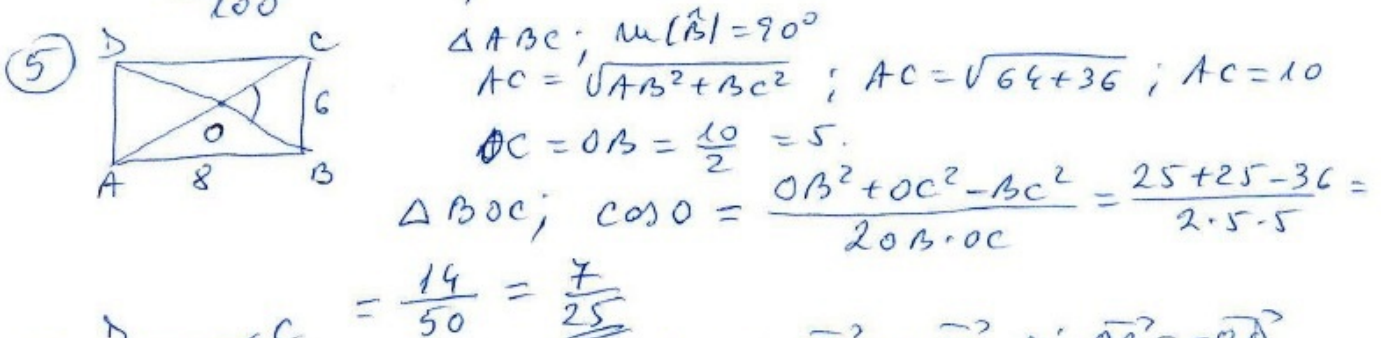 100
5
D C
△ABC; m(B̂)=90°
AC = √AB²+BC² ; AC = √64+36 ; AC = 10
6
O
OC = OB = 10/2 = 5.
A 8 B
△BOC; cosO = OB²+OC²-BC²/2OB·OC = 25+25-36/2·5·5 =
= 14/50 = 7/25
D C